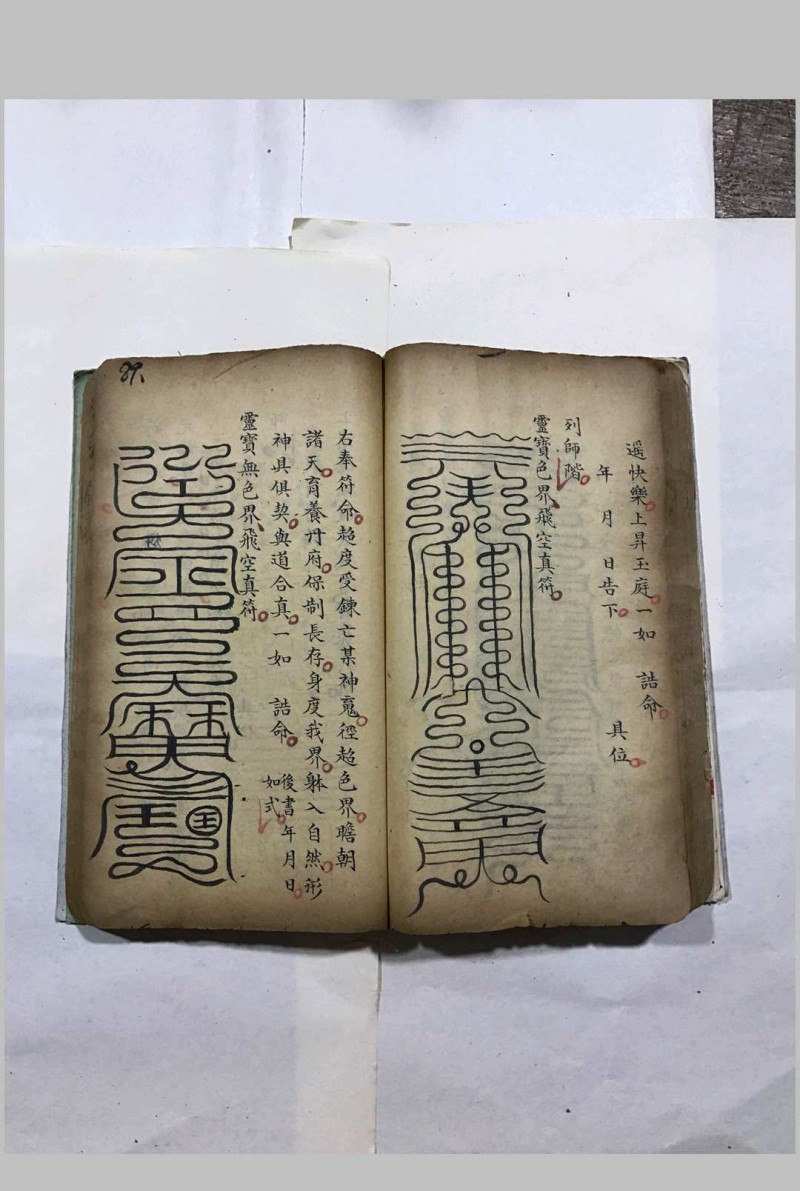 遥快樂上昇玉庭一如 誥命
年 月 日告下 具位
列師階
靈寶色界飛空真符
右奉符命超度受鍊亡某神魂徑超色界瞻朝
諸天育養丹府保制長存身度我界躰入自然形
神具俱契與道合真一如 誥命 後書年月日
如式
靈寶無色界飛空真符